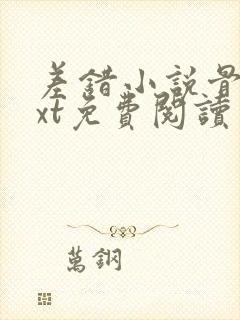 差錯小說
xt免費閱讀
萬鋼